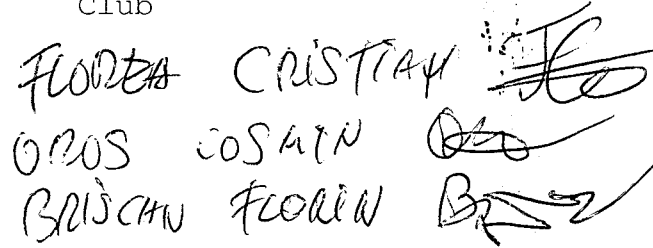 Club
FLOREA CRISTIAN
OROS COSMIN
BRISCAN FLORIN